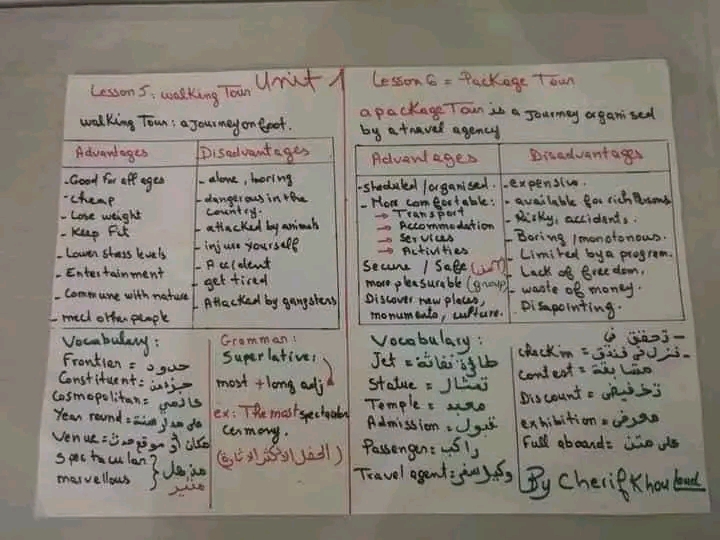 Unit 1
Lesson 5: walking Tour
walking Tour: a journey on foot.
Advantages
- Good for all ages
- cheap
- Lose weight
- Keep Fit
- Lower stress levels
- Entertainment
- Commune with nature
- meet other people
Disadvantages
- alone, boring
- dangerous in the
country.
- attacked by animals
- injure yourself
- Accident
- get tired
- Attacked by gangsters
Vocabulary:
Frontier = حدود
Constituent = جزء من
Cosmopolitan = عالمي
Year round = على مدار سنة
Venue = مكان أو موقع حدث
Spectacular
marvellous } مذهل
مثير
Grammar:
Superlative:
most + long adj
ex: The most spectacular
cermony.
(الحفل الأكثر إثارة)
Lesson 6 = Package Tour
a package Tour is a journey organised
by a travel agency
Advantages
- sheduled / organised.
- More comfortable:
→ Transport
→ Accommodation
→ Services
→ Activities
Secure / Safe (آمن)
more pleasurable (group)
Discover new places,
monuments, culture.
Disadvantages
- expensive.
- available for rich Persons
- Risky, accidents.
- Boring / monotonous.
- Limited by a program.
- Lack of freedom.
- waste of money.
- Disapointing.
Vocabulary:
Jet = طائرة نفاثة
Statue = تمثال
Temple = معبد
Admission = قبول
Passenger = راكب
Travel agent: وكيل سفر
- تحقق في
check in = نزل في فندق
contest = مسابقة
Discount = تخفيض
exhibition = معرض
Full aboard = على متن
By Cherif Khouloud